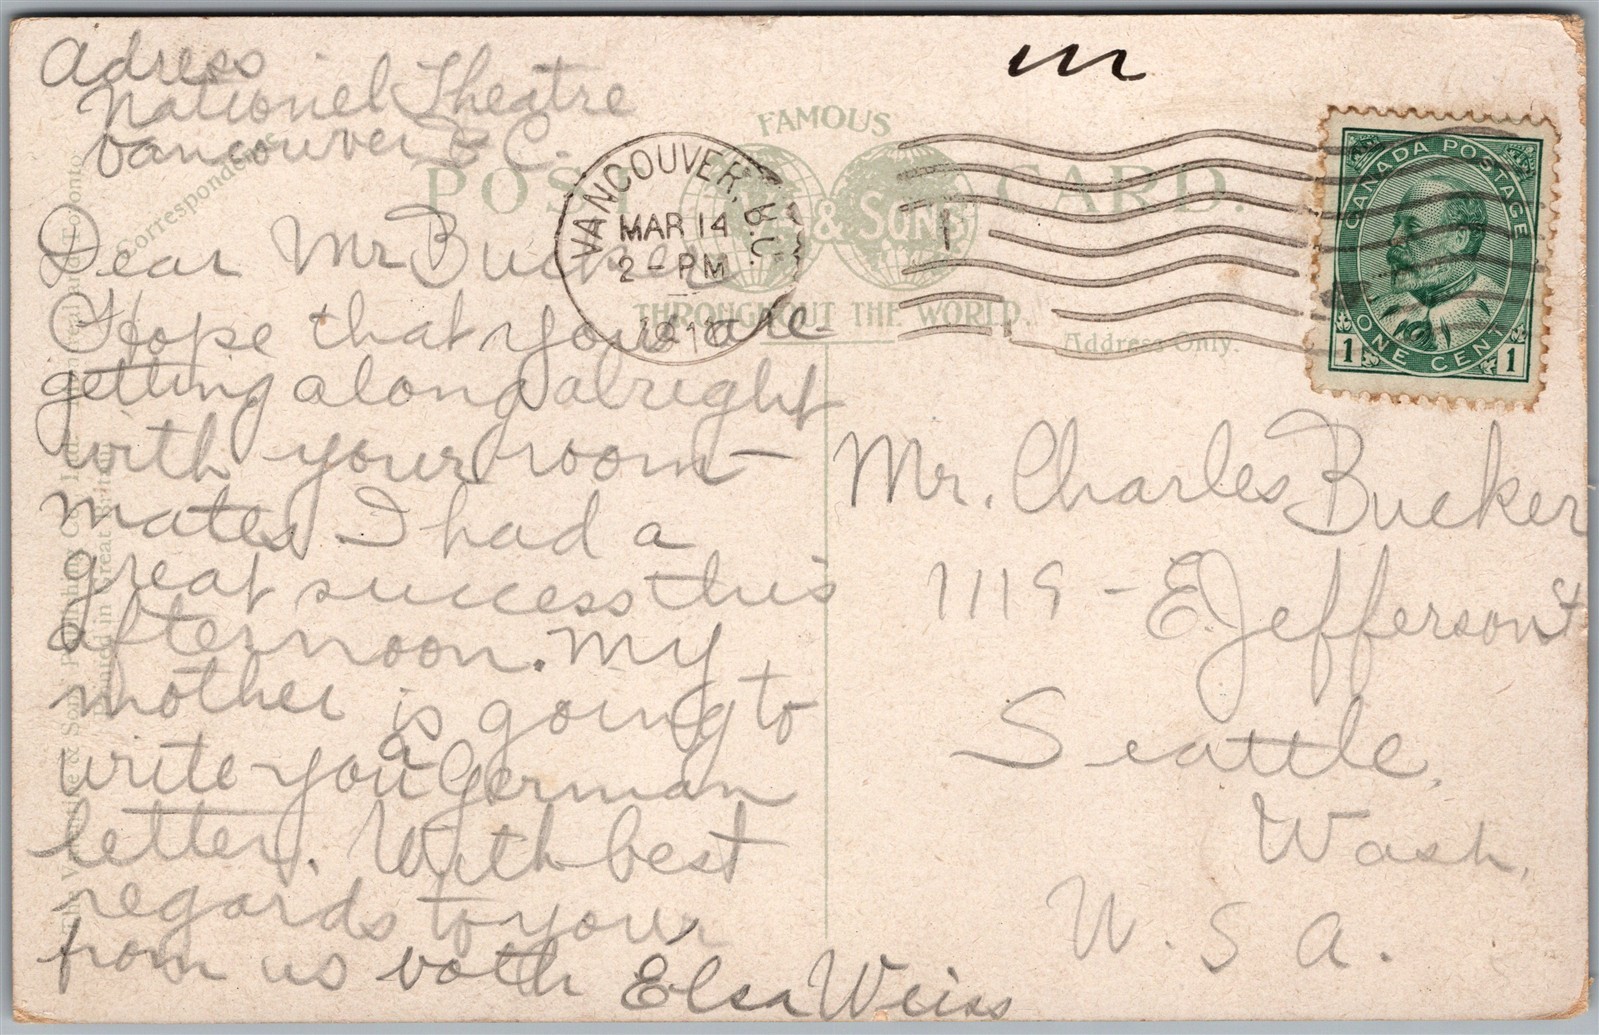 Adress
Nationel Theatre
Vancouver B C.
Dear Mr Bucker
I Hope that you are
getting along alright
with your room-
mates I had a
great success this
afternoon. My
mother is going to
write you a German
letter. With best
regards to your
from us both Elsa Weiss
m
FAMOUS
POST CARD.
& SONS
THROUGHOUT THE WORLD.
Correspondence
Address Only.
VANCOUVER, B.C.
MAR 14
2 - PM
CANADA POSTAGE
ONE CENT
1 1
Mr. Charles Bucker
1119 - E. Jefferson St
Seattle,
Wash,
U. S. A.
& Sons Publishing Co. Ltd. Toronto
Printed in Great Britain